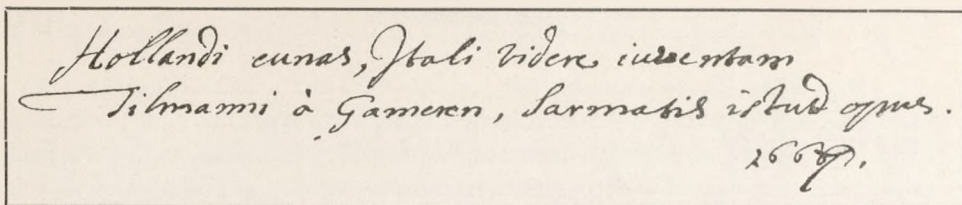 Hollandi cunas, Itali videre iuventam
Tilmanni à Gameren, Sarmatis istud opus.